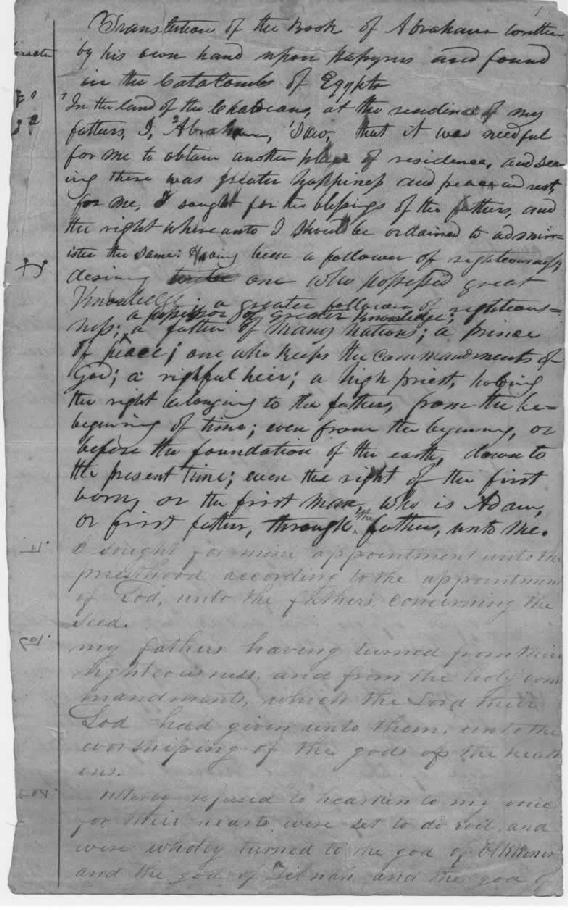 Translation of the Book of Abraham written
by his own hand upon papyrus and found
in the CataCombs of Egypt
In the land of the Chaldeans, at the residence of my
fathers, I, Abraham, Saw, that it was needful
for me to obtain another place of residence, and see
ing there was greater happiness and peace and rest,
for me, I sought for the blessings of the fathers, and
the right whereunto I should be ordained to admin
ister the same: Having been a follower of righteousness
desiring to be one who possessed great
Knowledge; a greater follower of righteous=
a possessor of greater Knowledge;
ness; a father of many nations; a prince
of peace; one who keeps the commandments of
God; a rightful heir; a high priest, holding
the right belonging to the fathers, from the be=
begining of time; even from the begining, or
before the foundation of the earth, down to
the present time; even the right of the first
born, or the first man, who is Adam,
or first father, through the fathers, unto me.
I sought for mine appointment unto the
priesthood according to the appointment
of God, unto the fathers concerning the
Seed.
my fathers having turned from their
righteousness, and from the holy com
mandments, which the Lord their
God had given unto them, unto the
worshiping of the gods of the heath
ens.
refused to hearken to my voice
for their hearts were set to do evil, and
were wholly turned to the god of
and the god of and the god of